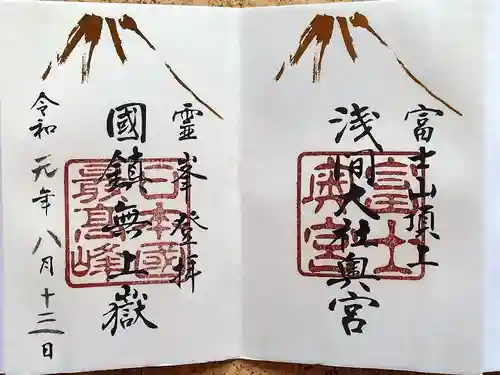 富士山頂上
浅間大社奥宮
富士
奥宮
霊峯登拝
國鎮無上嶽
日本國
最高峰
令和元年八月十二日